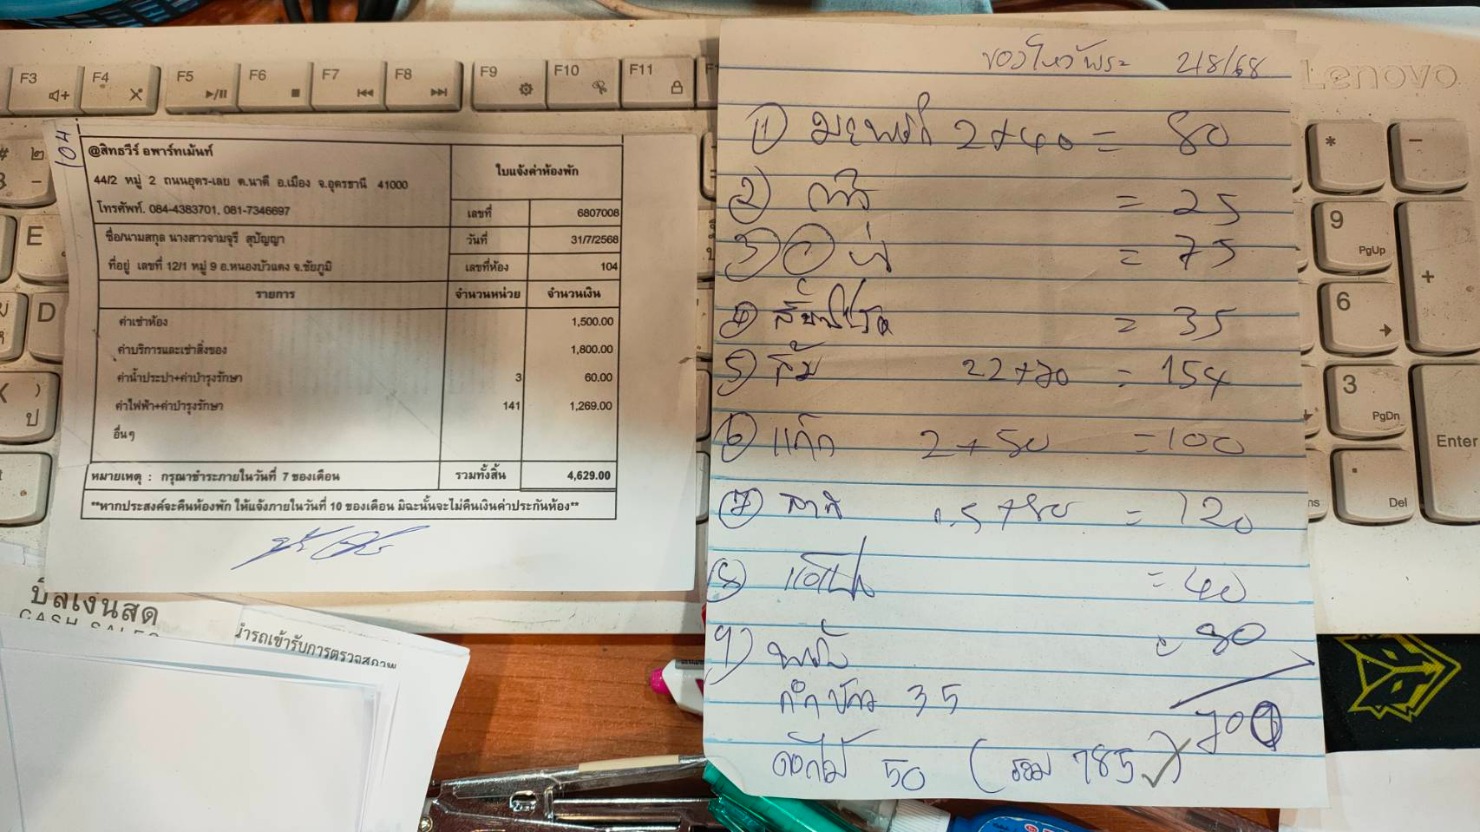 104
@สิทธวีร์ อพาร์ทเม้นท์
44/2 หมู่ 2 ถนนอุดร-เลย ต.นาดี อ.เมือง จ.อุดรธานี 41000
โทรศัพท์. 084-4383701, 081-7346697
ใบแจ้งค่าห้องพัก
เลขที่ 6807008
ชื่อ/นามสกุล นางสาวจามจุรี สุปัญญา วันที่ 31/7/2568
ที่อยู่ เลขที่ 12/1 หมู่ 9 อ.หนองบัวแดง จ.ชัยภูมิ เลขที่ห้อง 104
รายการ จำนวนหน่วย จำนวนเงิน
ค่าเช่าห้อง 1,500.00
ค่าบริการและเช่าสิ่งของ 1,800.00
ค่าน้ำประปา+ค่าบำรุงรักษา 3 60.00
ค่าไฟฟ้า+ค่าบำรุงรักษา 141 1,269.00
อื่นๆ
หมายเหตุ : กรุณาชำระภายในวันที่ 7 ของเดือน รวมทั้งสิ้น 4,629.00
**หากประสงค์จะคืนห้องพัก ให้แจ้งภายในวันที่ 10 ของเดือน มิฉะนั้นจะไม่คืนเงินค่าประกันห้อง**
บิลเงินสด
CASH SALES
นำรถเข้ารับการตรวจสภาพ
ของไหว้พระ 2/8/68
1) มะพร้าว 2+40 = 80
2) = 25
3) = 75
4) สับปะรด = 35
5) ส้ม 22+70 = 154
6) แก้ว 2+50 =100
7) สาลี่ = 120
8) แอปเปิ้ล = 40
9) = 80
709
35
ดอกไม้ 50 (รวม 785 ✓)
Lenovo
F3
F4
F5
F6
F7
F8
F9
F10
F11
E
D
*
-
9
PgUp
+
6
3
PgDn
Enter
.
Del